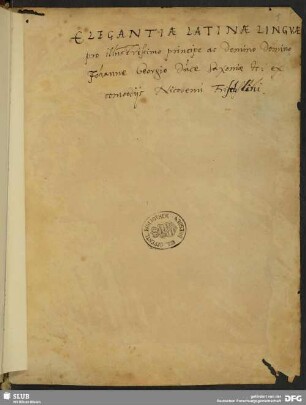 ELEGANTIÆ LATINÆ LINGUÆ
pro illustrissimo principe ac Domino Domino
Johanne Georgio Duce Saxoniæ &c. ex
comoedijs Nicodemi Frischlini
SLUB
Wir führen Wissen.
gefördert von der
Deutschen Forschungsgemeinschaft
DFG